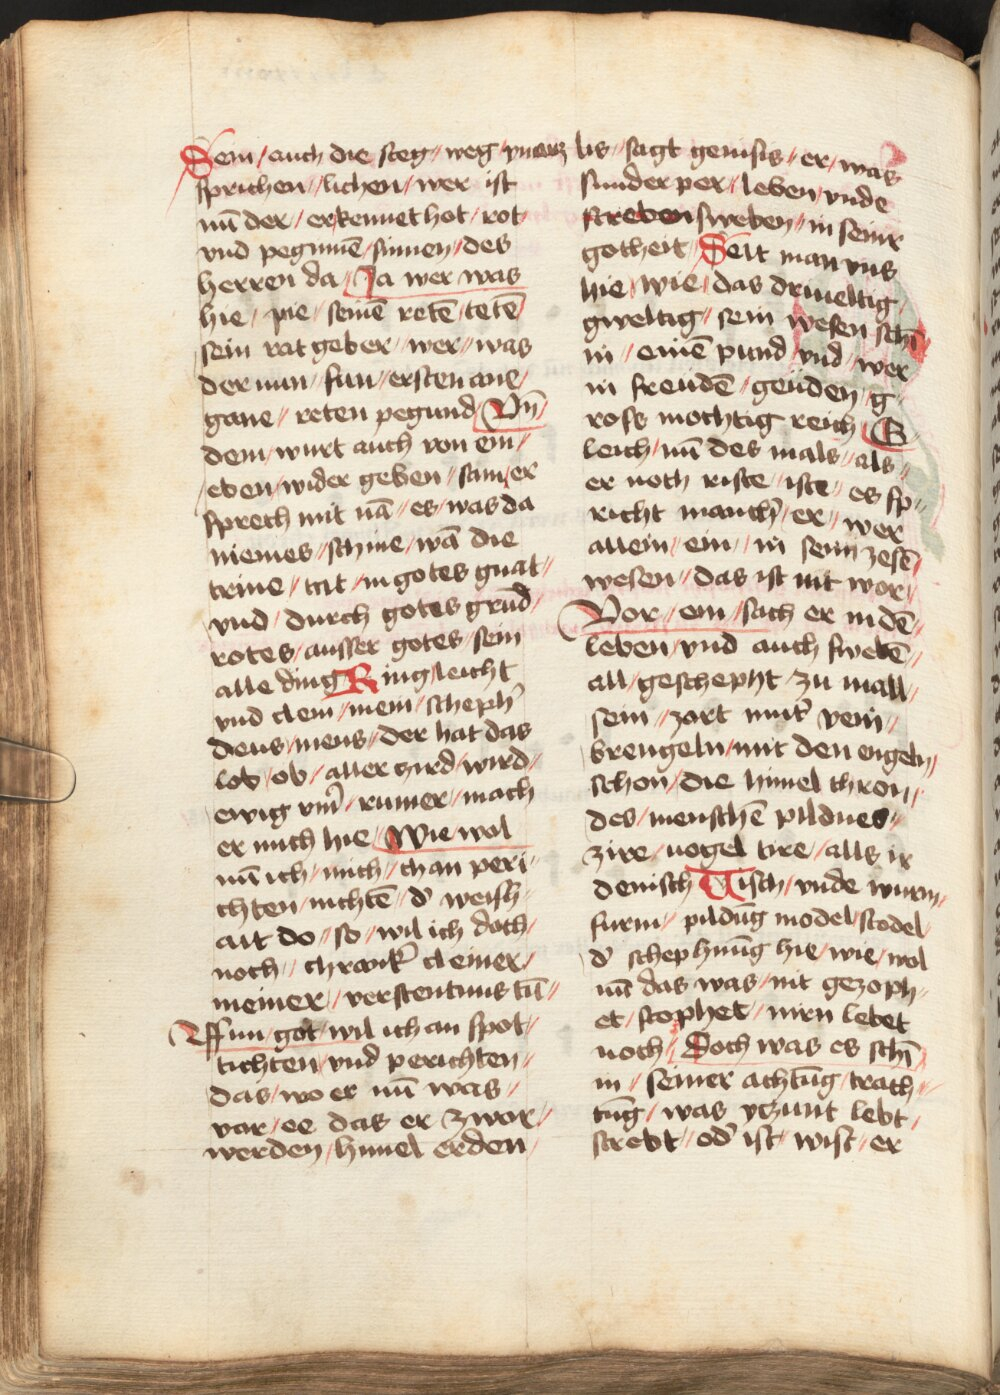 Sein / auch die steg / weg / vnausz
sprichen / lichen / wer ist
nu͞ der / erkennet hot / rot
vnd pegume͞ / sinnen / des
herren da / Ja wer was
hie / pie / seine͞ rete͞ / tete͞
sein rat geber / wer / was
der nun / fun / ersten ane /
gane / reten pegund / Vn͞
dem / wurt auch von ein /
eben / wider geben / sam / er
sprech mit na͞ / es / was da
niemes / schine / wa͞ die
trine / tat / in gotes gnat
vnd / durch gotes gru͞d
rotes / ausser gotes / sein
alle ding Ring / leicht
vnd clein / mein / scheph͛
deus / mens / der hat das
lob / ob / aller zird / wird
ewig vm͛ / rumer / mach
er mich hie / Wie wol
nu͞ ich / mich / chan peri
chten / nichte͞ / d͛ weish
ait do / so / wil ich doch
noch / chrank͛ cleiner /
meiner / verstentnus tu͞
Uffun / got / wil ich an spot
tichten / vnd perichten
das / wo er nu͞ was
vor / ee das er zwor
werden / himel erden
bis / sagt genisis / er / was
sunder per / leben / vnde
streben sweben / in seinr
gotheit / Seit man vns
hie / wie / das driueltig
gweltig / sein wesen schi͞
in / eine͞ pund / vnd / wer
in freude͞ / geuden / g
ross mochtig reich / G
leich / nu͞ des mals / als
er noch riste / iste / es sp
richt manch͛ / er / wer
allein / ein / in seim zese͞
wesen / das ist nit wor
Vor / ein / sach er in de͞
leben / vnd auch swebe͞
all / geschepht / zu mall
sein / zort mut͛ vein
brengeln / mit den engeln
schon / die himel thron
des / mensche͞ pildnes
zire / uogel tire / alls ir
denisch Visch / vnde wurm
furm / pildu͞g model / stodel
d͛ schephnu͞g hie / wie / wol
nu͞ das was / nit gezoph
et / stophet / nirn lebet
noch / Doch was es schi͞
in / seiner achtu͞g / trach
tu͞g / was yczunt lebt
strebt / od͛ ist / wist / er